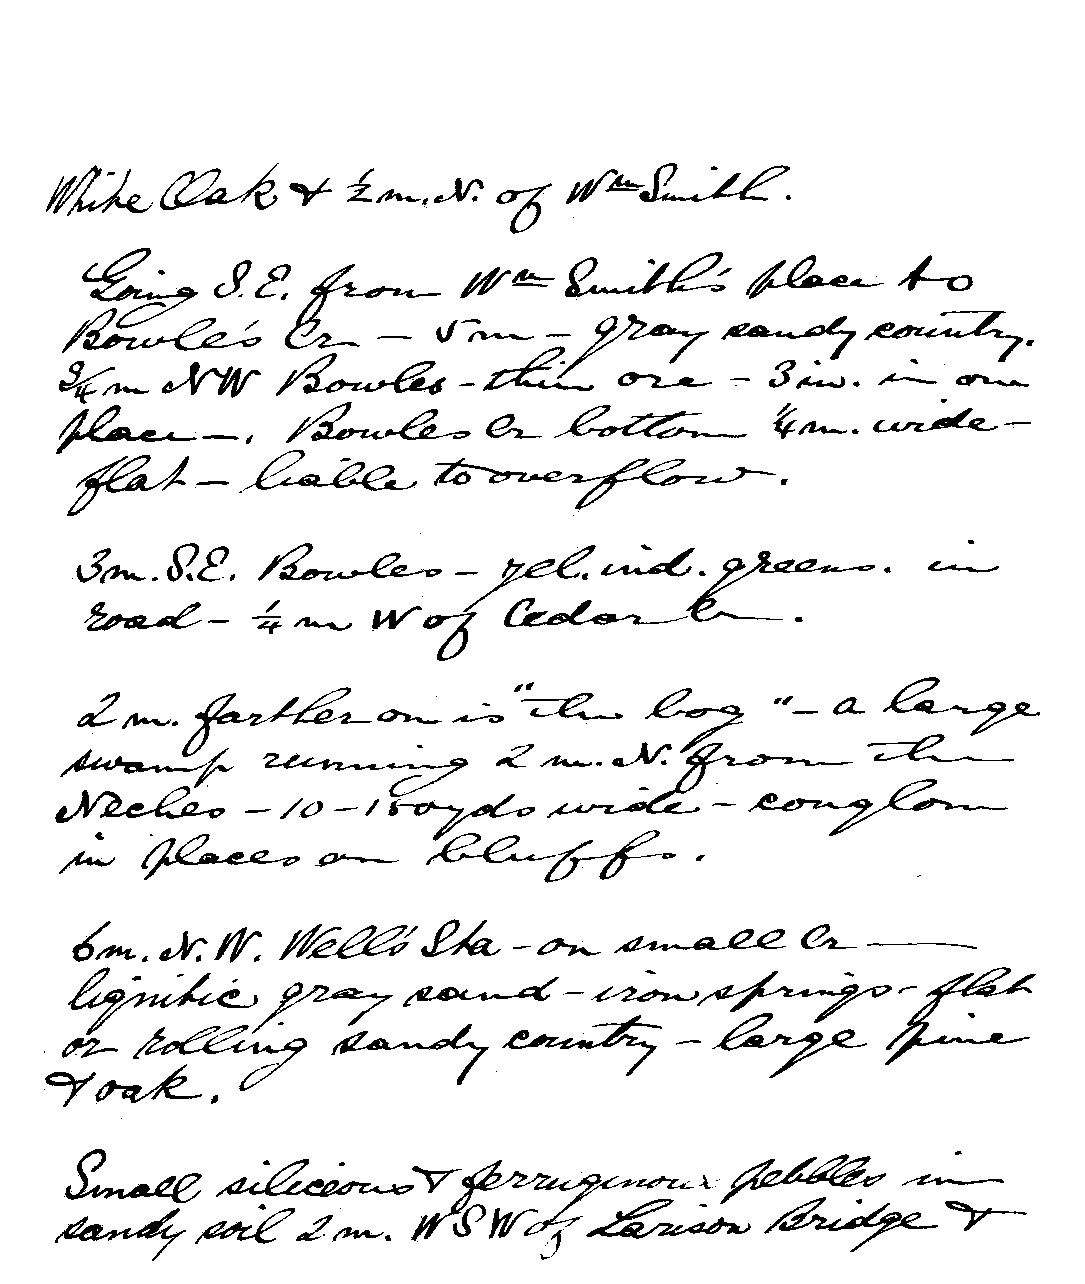 White Oak & ½ m. N. of Wm Smith.
Going S.E. from Wm Smith's place to
Bowle's Cr — 5 m — gray sandy country.
¾ m NW Bowles - thin ore - 3 in. in one
place —. Bowles Cr bottom ¼ m. wide -
flat — liable to overflow.
3 m. S.E. Bowles - yel. ind. greens. in
road - ¼ m W of Cedar Cr.
2 m. farther on is "the bog" - a large
swamp running 2 m. N. from the
Neches - 10 - 150 yds wide - conglom
in places on bluffs.
6 m. N.W. Well's Sta - on small Cr —
lignitic gray sand - iron springs - flat
or rolling sandy country - large pine
& oak.
Small silicious & ferruginous pebbles in
sandy soil 2 m. WSW of Larison Bridge &